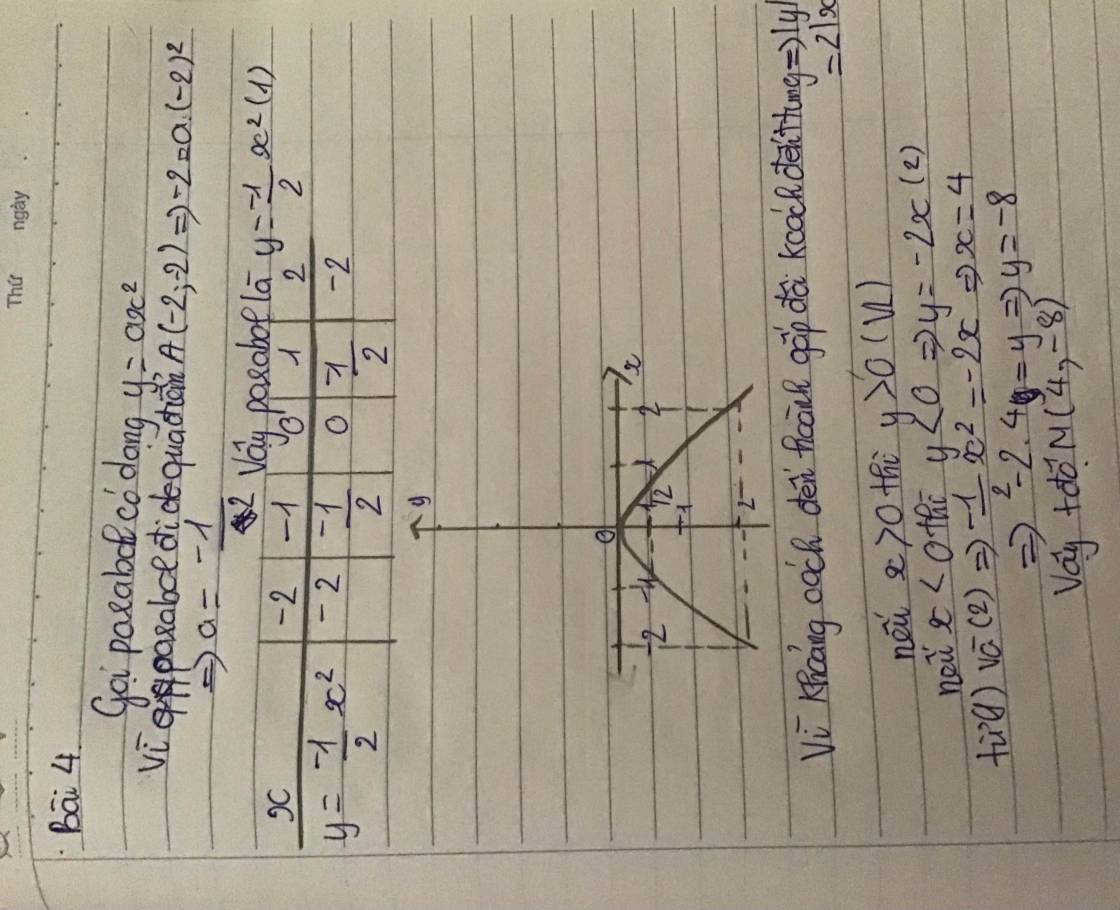 Thứ ngày
Bài 4
Gọi parabol có dạng y = ax²
Vì parabol đi qua điểm A(-2;-2) => -2 = a.(-2)²
=> a = -1/2 Vậy parabol là y = -1/2 x² (1)
x -2 -1 0 1 2
y = -1/2 x² -2 -1/2 0 -1/2 -2
y
O x
-2 -1 1 2
1/2
-1
2
Vì khoảng cách đến hoành gấp đôi kcách đến tung => |y|
= 2|x
nếu x > 0 thì y > 0 (VL)
nếu x < 0 thì y < 0 => y = -2x (2)
từ (1) và (2) => -1/2 x² = -2x => x = 4
=> -2.4 = y => y = -8
Vậy tđộ M(4,-8)